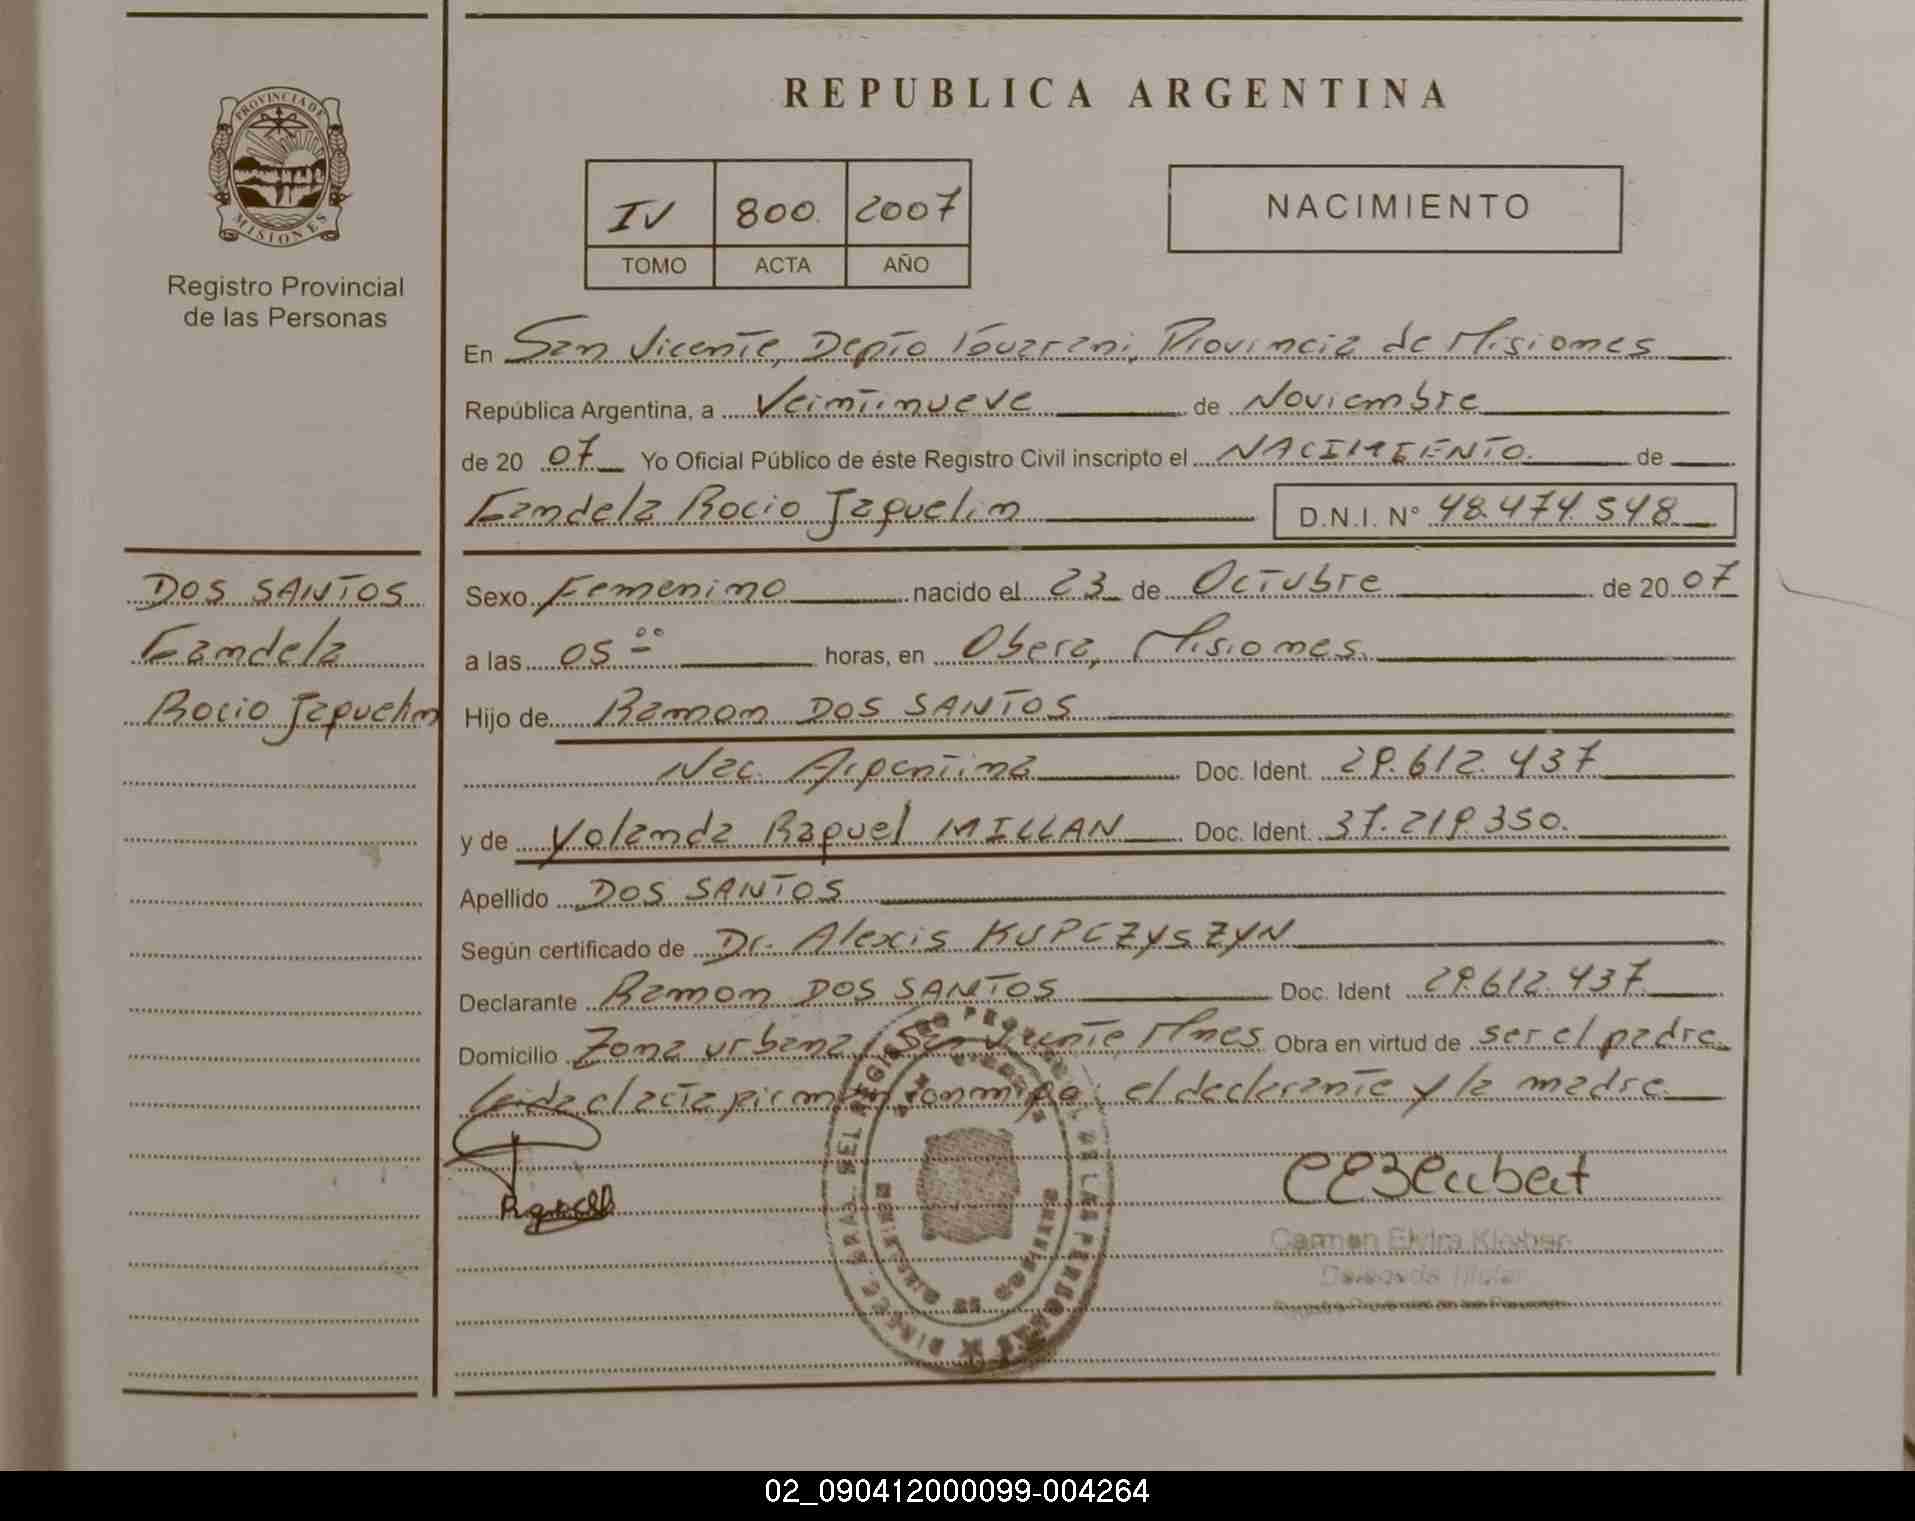 PROVINCIA DE
MISIONES
Registro Provincial
de las Personas
REPUBLICA ARGENTINA
IV 800. 2007
TOMO ACTA AÑO
NACIMIENTO
En San Vicente, Depto Guarani, Provincia de Misiones
República Argentina, a Veintinueve de Noviembre
de 20 07 Yo Oficial Público de éste Registro Civil inscripto el NACIMIENTO. de
Candela Rocio Jaquelin D.N.I. N° 48.474.548
DOS SANTOS
Candela
Rocio Jaquelin
Sexo Femenino nacido el 23 de Octubre de 20 07
a las 05 00 horas, en Obera, Misiones.
Hijo de Ramon DOS SANTOS
Nac. Argentina Doc. Ident. 29.612.437
y de Yolanda Raquel MILLAN Doc. Ident. 37.219.350.
Apellido DOS SANTOS
Según certificado de Dr. Alexis KUPCZYSZYN
Declarante Ramon DOS SANTOS Doc. Ident 29.612.437
Domicilio Zona urbana, San Vicente, Mnes. Obra en virtud de ser el padre.
Leida el acta firman conmigo el declarante y la madre.
Carmen Elvira Kleiber
Delegada Titular
Registro Provincial de las Personas
02_090412000099-004264